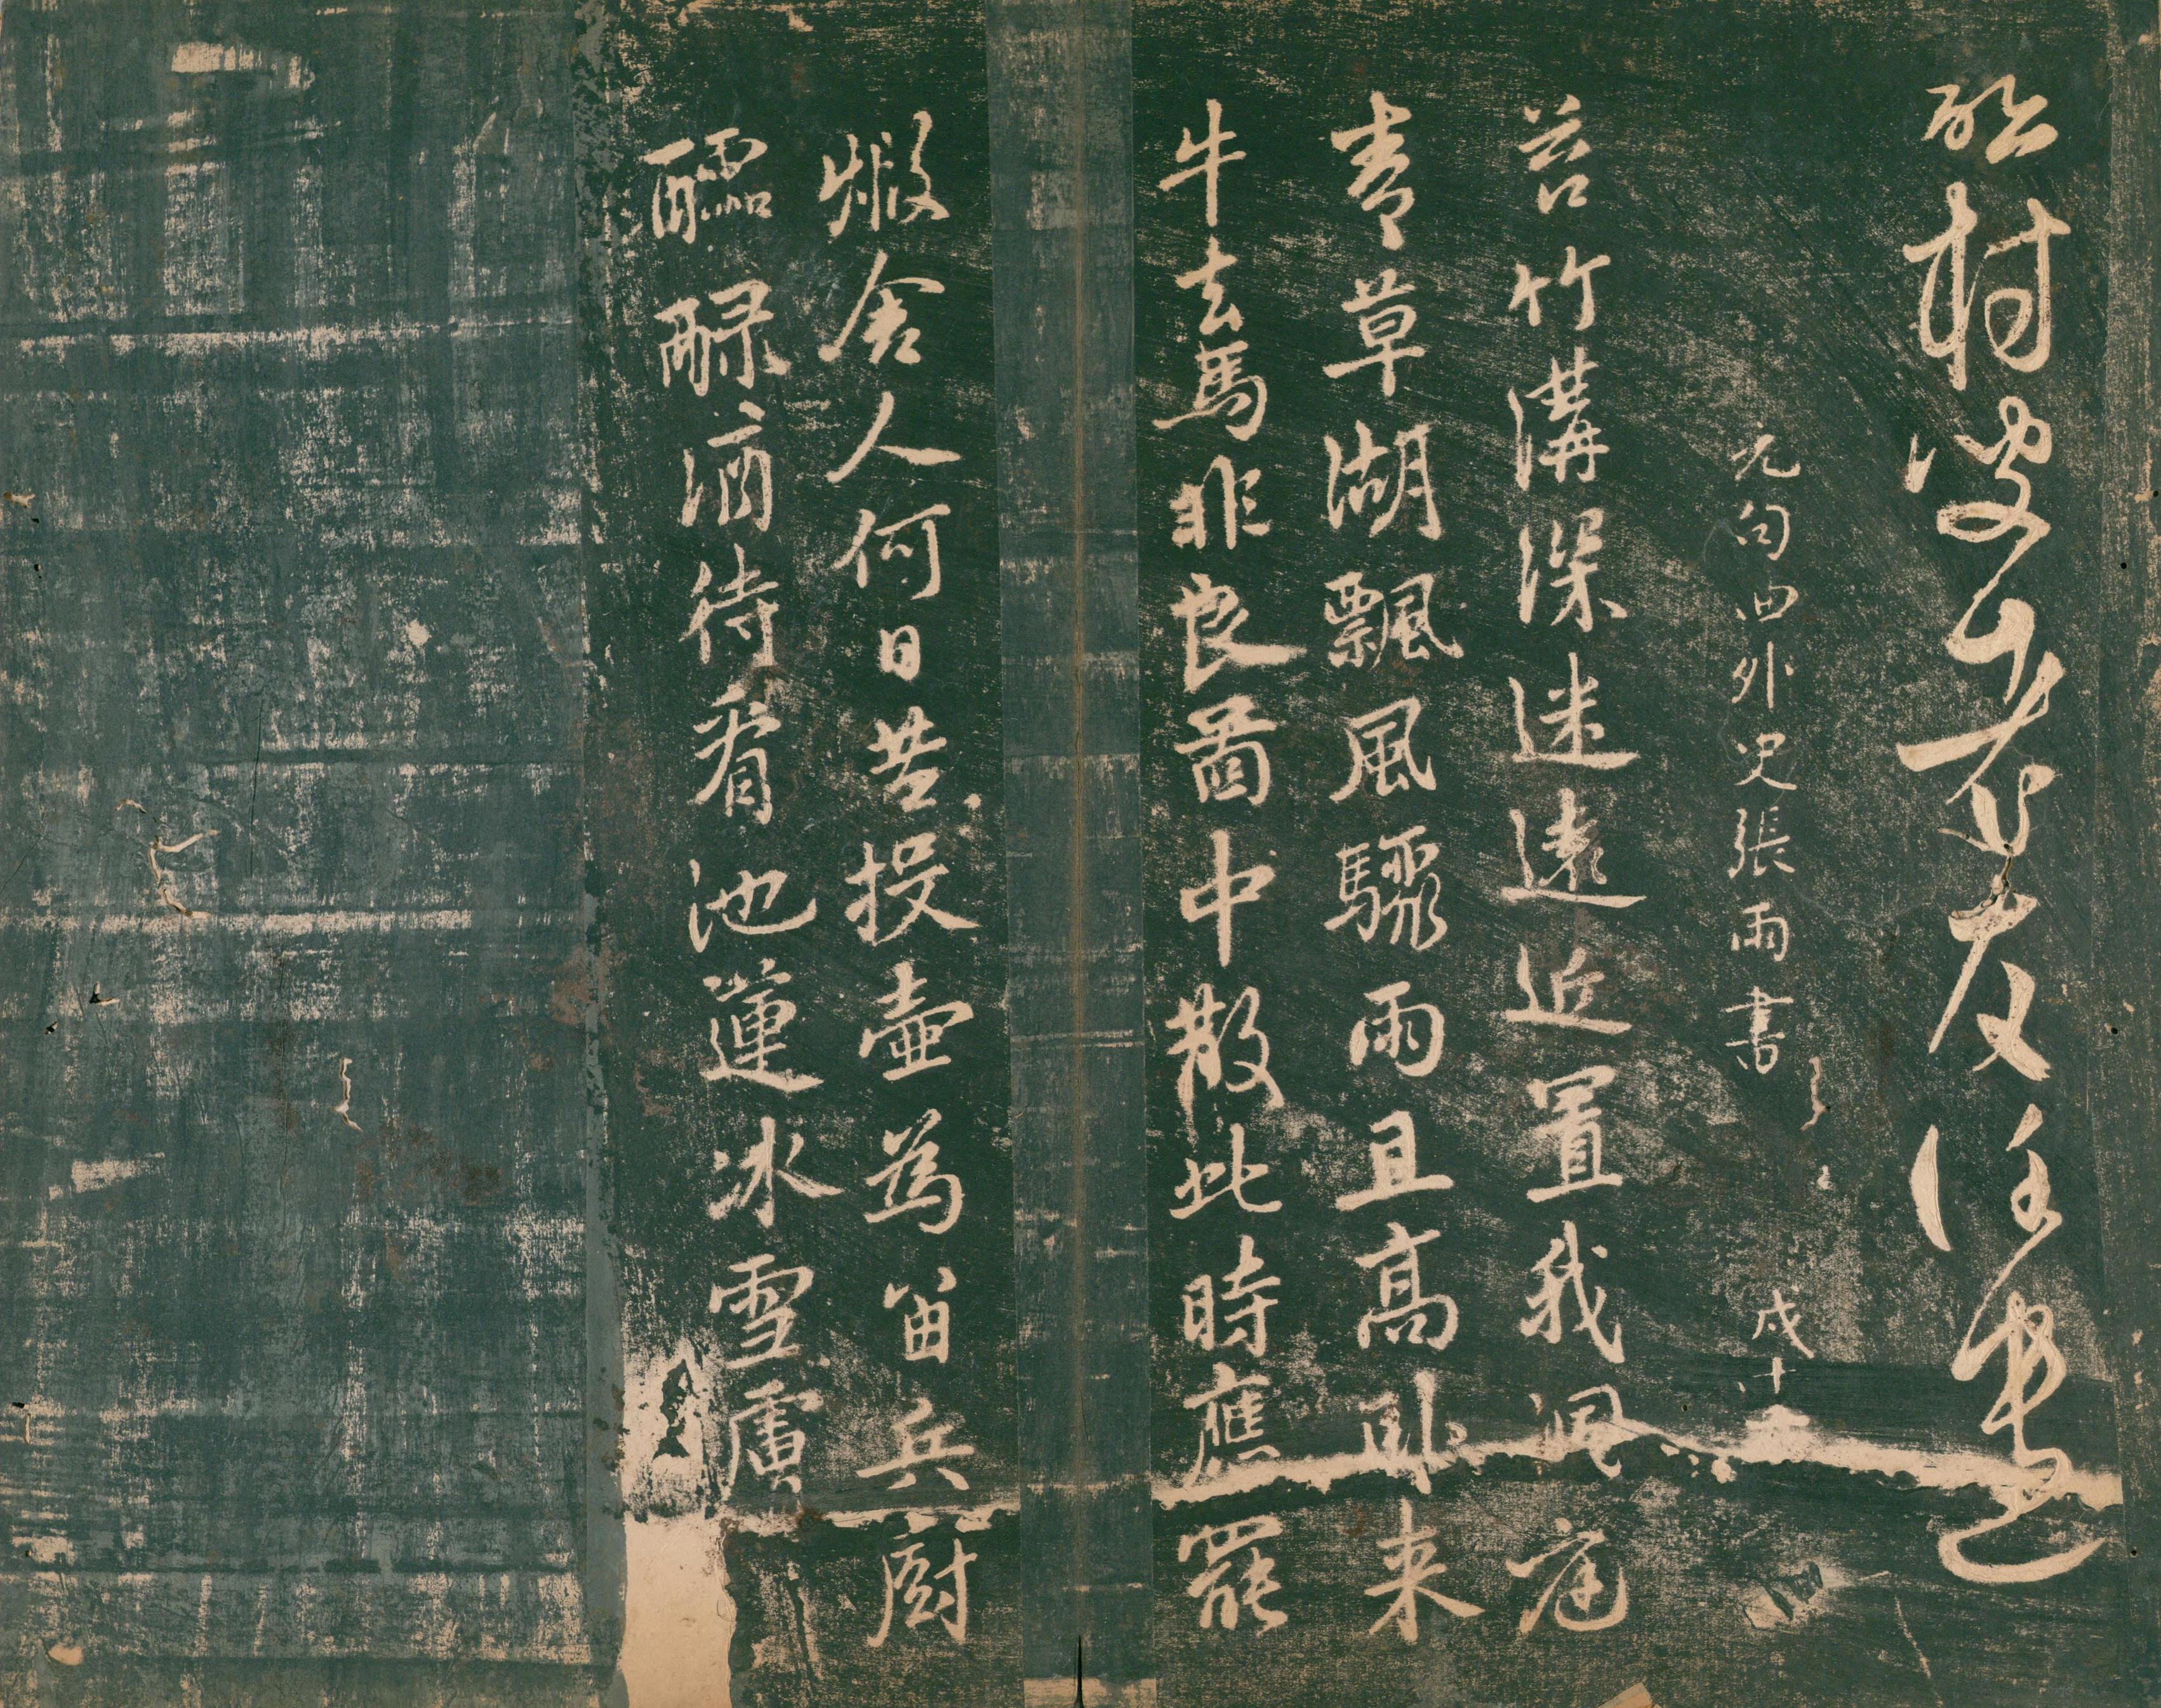 元句曲外史張雨書
苔竹溝深迷遠近置我
青草湖飄風驟雨且高卧来
牛去馬非良圖中散此時應罷
煅舍人何日苦投壺為留兵廚
醽醁酒待看池蓮冰雪膚